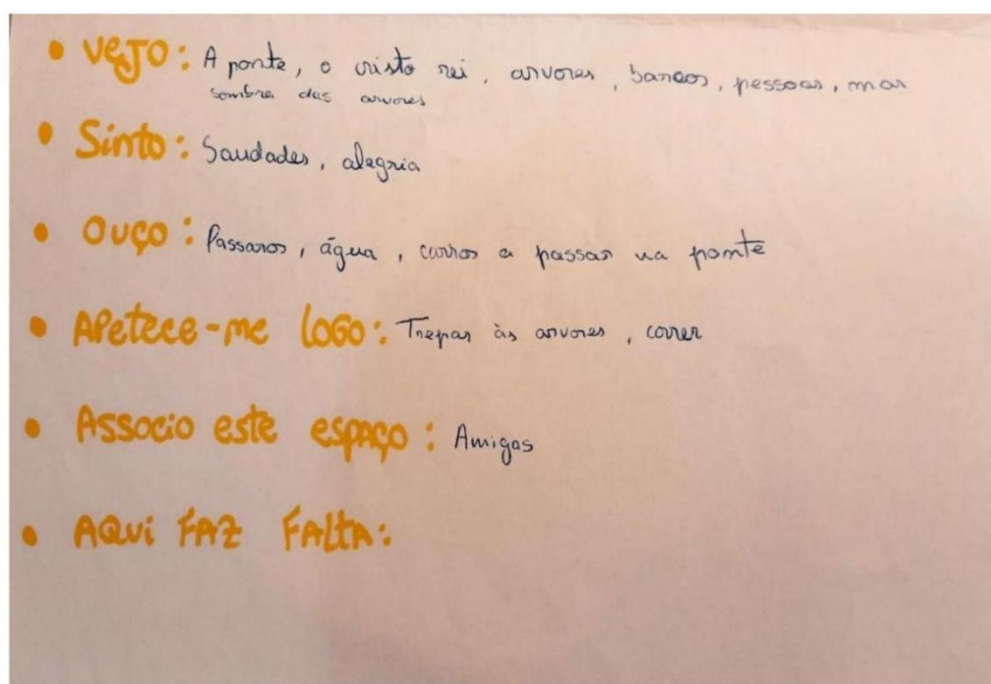 • VEJO: A ponte, o cristo rei, arvores, bancos, pessoas, mar
sombra das arvores
• Sinto: Saudades, alegria
• OUÇO: Passaros, água, carros a passar na ponte
• APetece-me LOGO: Trepar às arvores, correr
• Associo este espaço: Amigas
• AQUi FAZ FALTA: